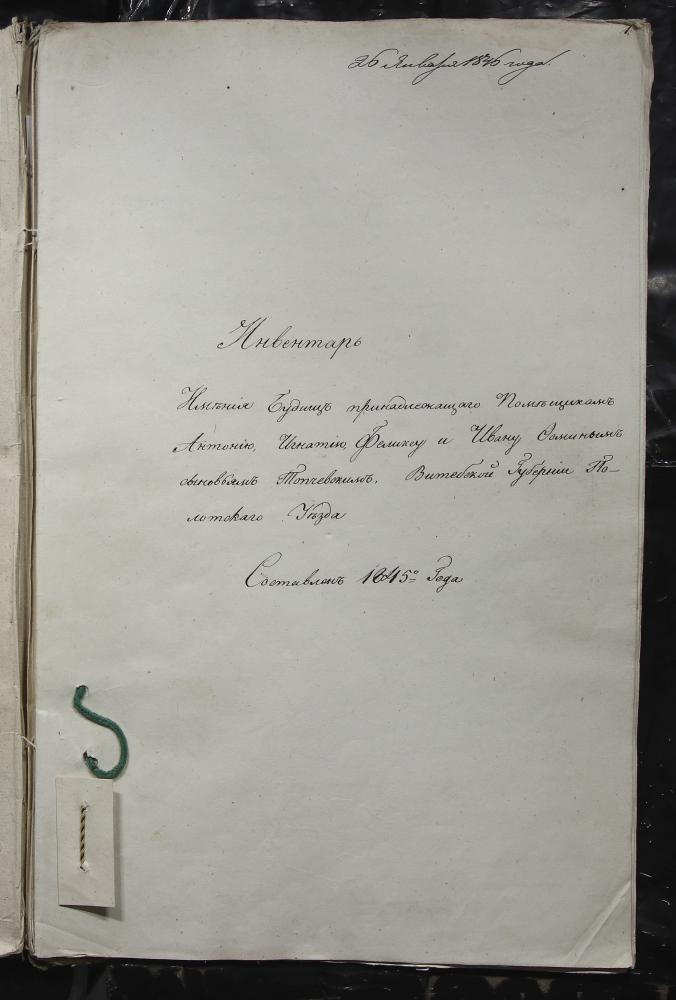 26 Января 1846 года.
Инвентарь
Имѣнія Будищъ принадлежащаго Помѣщикамъ
Антонію, Игнатію, Феликсу и Ивану Ѳоминымъ
сыновьямъ Топчевскимъ, Витебской Губерніи По-
лотскаго Уѣзда
Составленъ 1845го Года